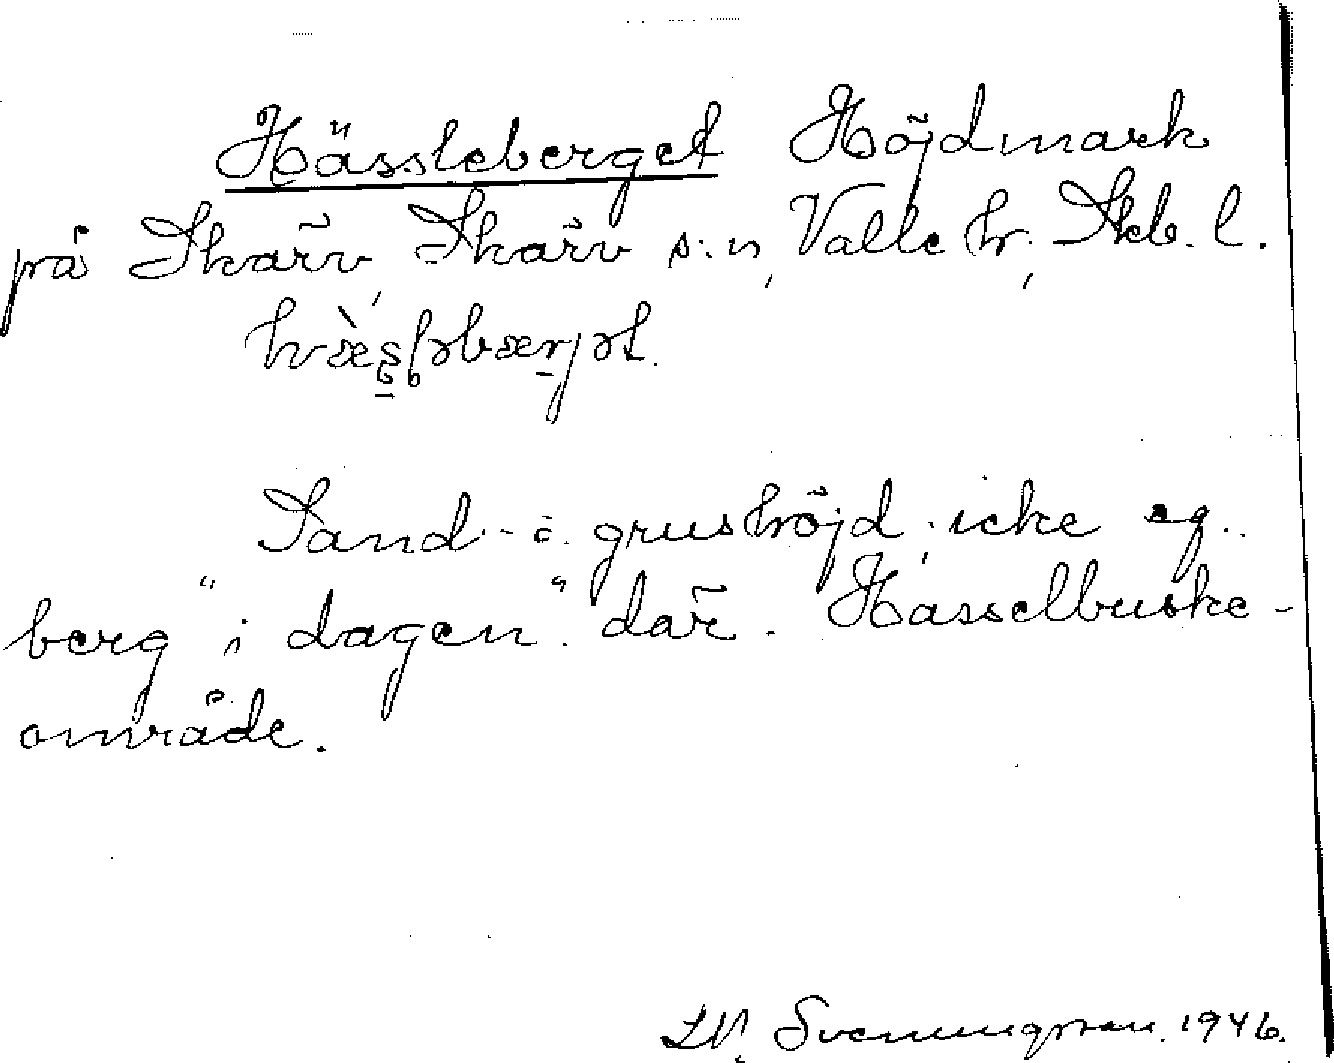 Hässleberget Höjdmark
på Skärv, Skärv s:n, Valle hr, Skb. l.
Sand- o. grushöjd, icke eg.
berg "i dagen" där. Hasselbuske-
område.
Sveningsson. 1946.